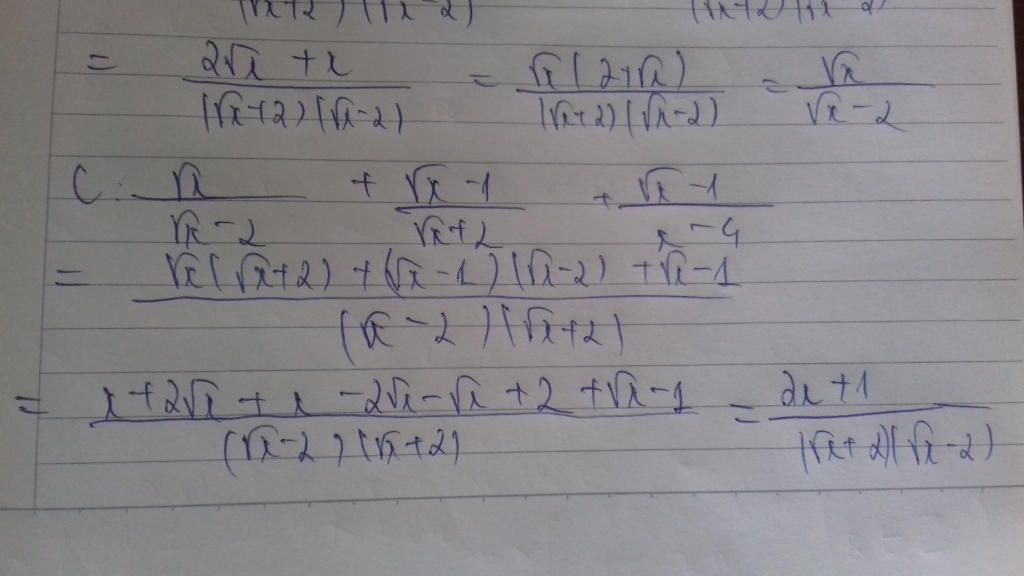 (√x+2)(√x-2) (√x+2)(√x-2)
= (2√x + x)/((√x+2)(√x-2)) = (√x(2+√x))/((√x+2)(√x-2)) = √x/(√x-2)
C: √x/(√x-2) + (√x-1)/(√x+2) + (√x-1)/(x-4)
= (√x(√x+2) + (√x-1)(√x-2) + √x-1)/((√x-2)(√x+2))
= (x+2√x + x -2√x-√x+2+√x-1)/((√x-2)(√x+2)) = (2x+1)/((√x+2)(√x-2))